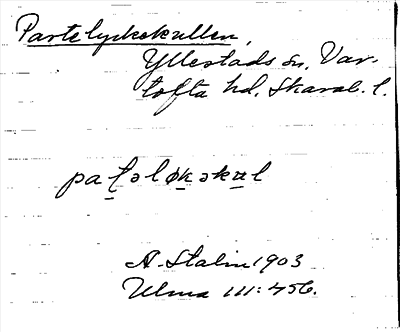 Partelyckekullen,
Yllestads sn, Var-
tofta hd, Skarab. l.
paḷəløkəkul
A. Stalin 1903
Ulma 111:456.